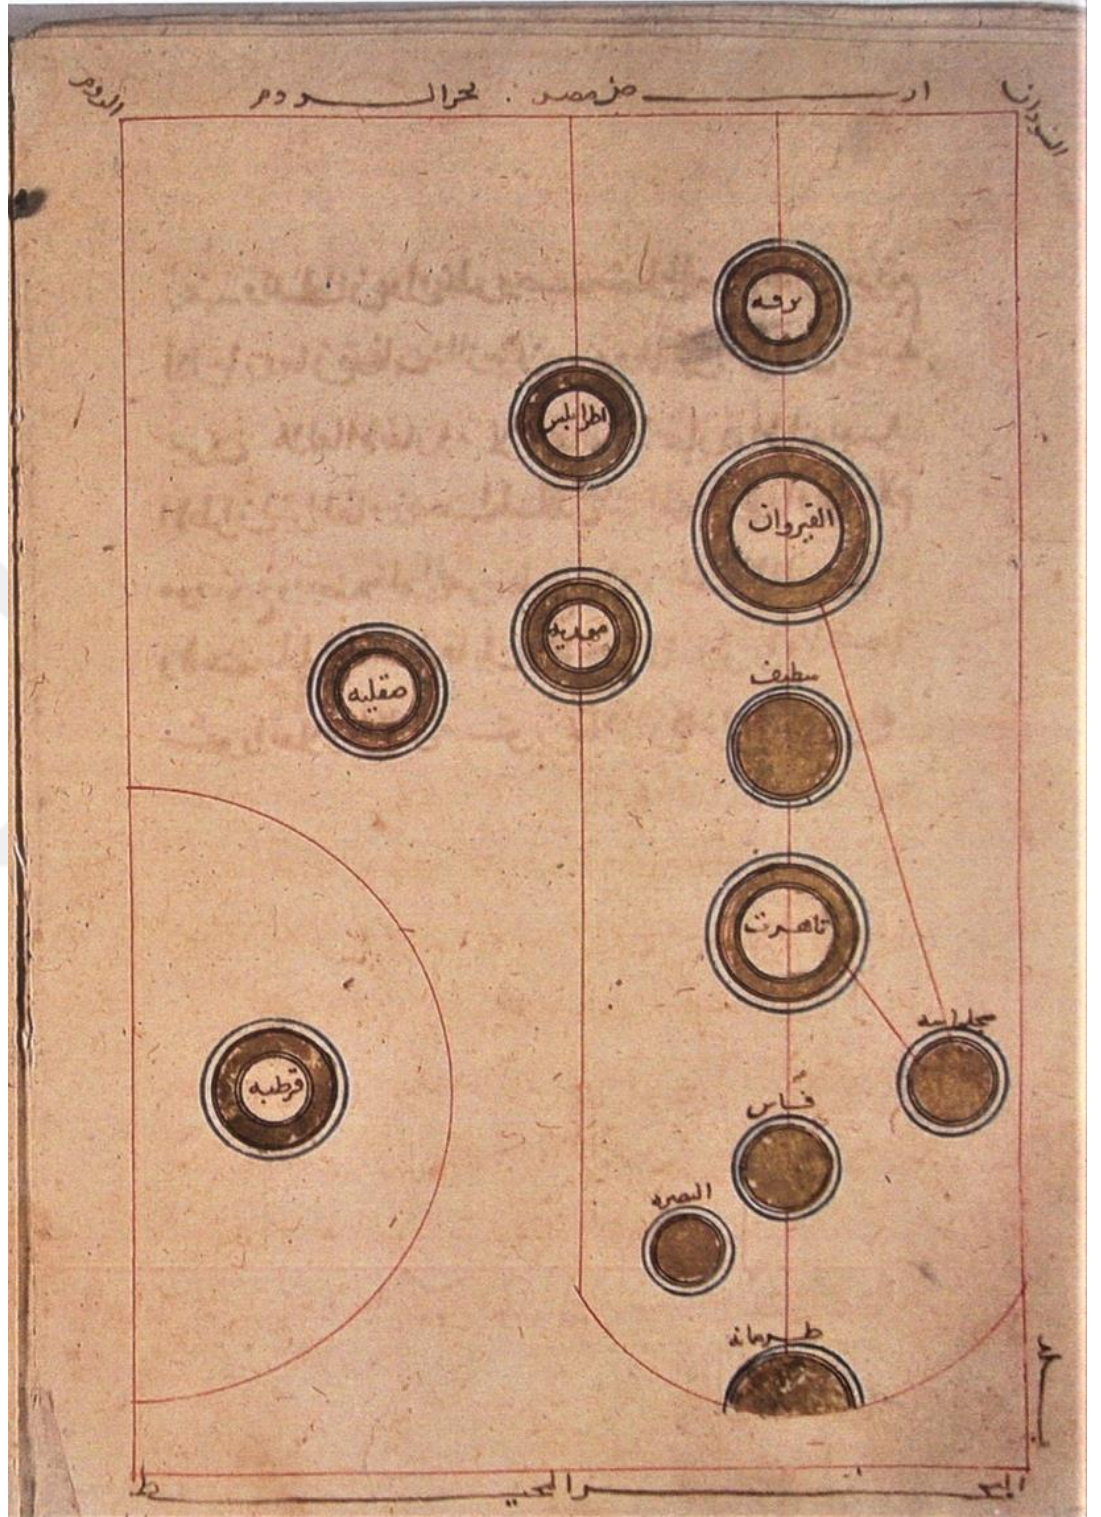 السودان
ارض مصر . بحر الروم
الروم
برقه
اطرابلس
القيروان
مهديه
صقليه
سطيف
تاهرت
سجلماسه
قرطبه
فاس
البصره
البحر المحيط